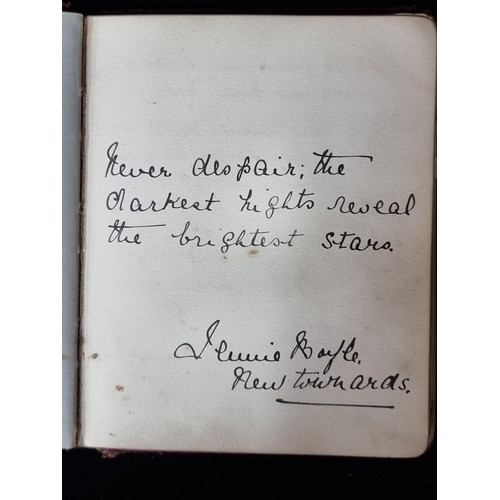 Never despair; the
darkest nights reveal
the brightest stars.
Jennie Boyle.
Newtownards.